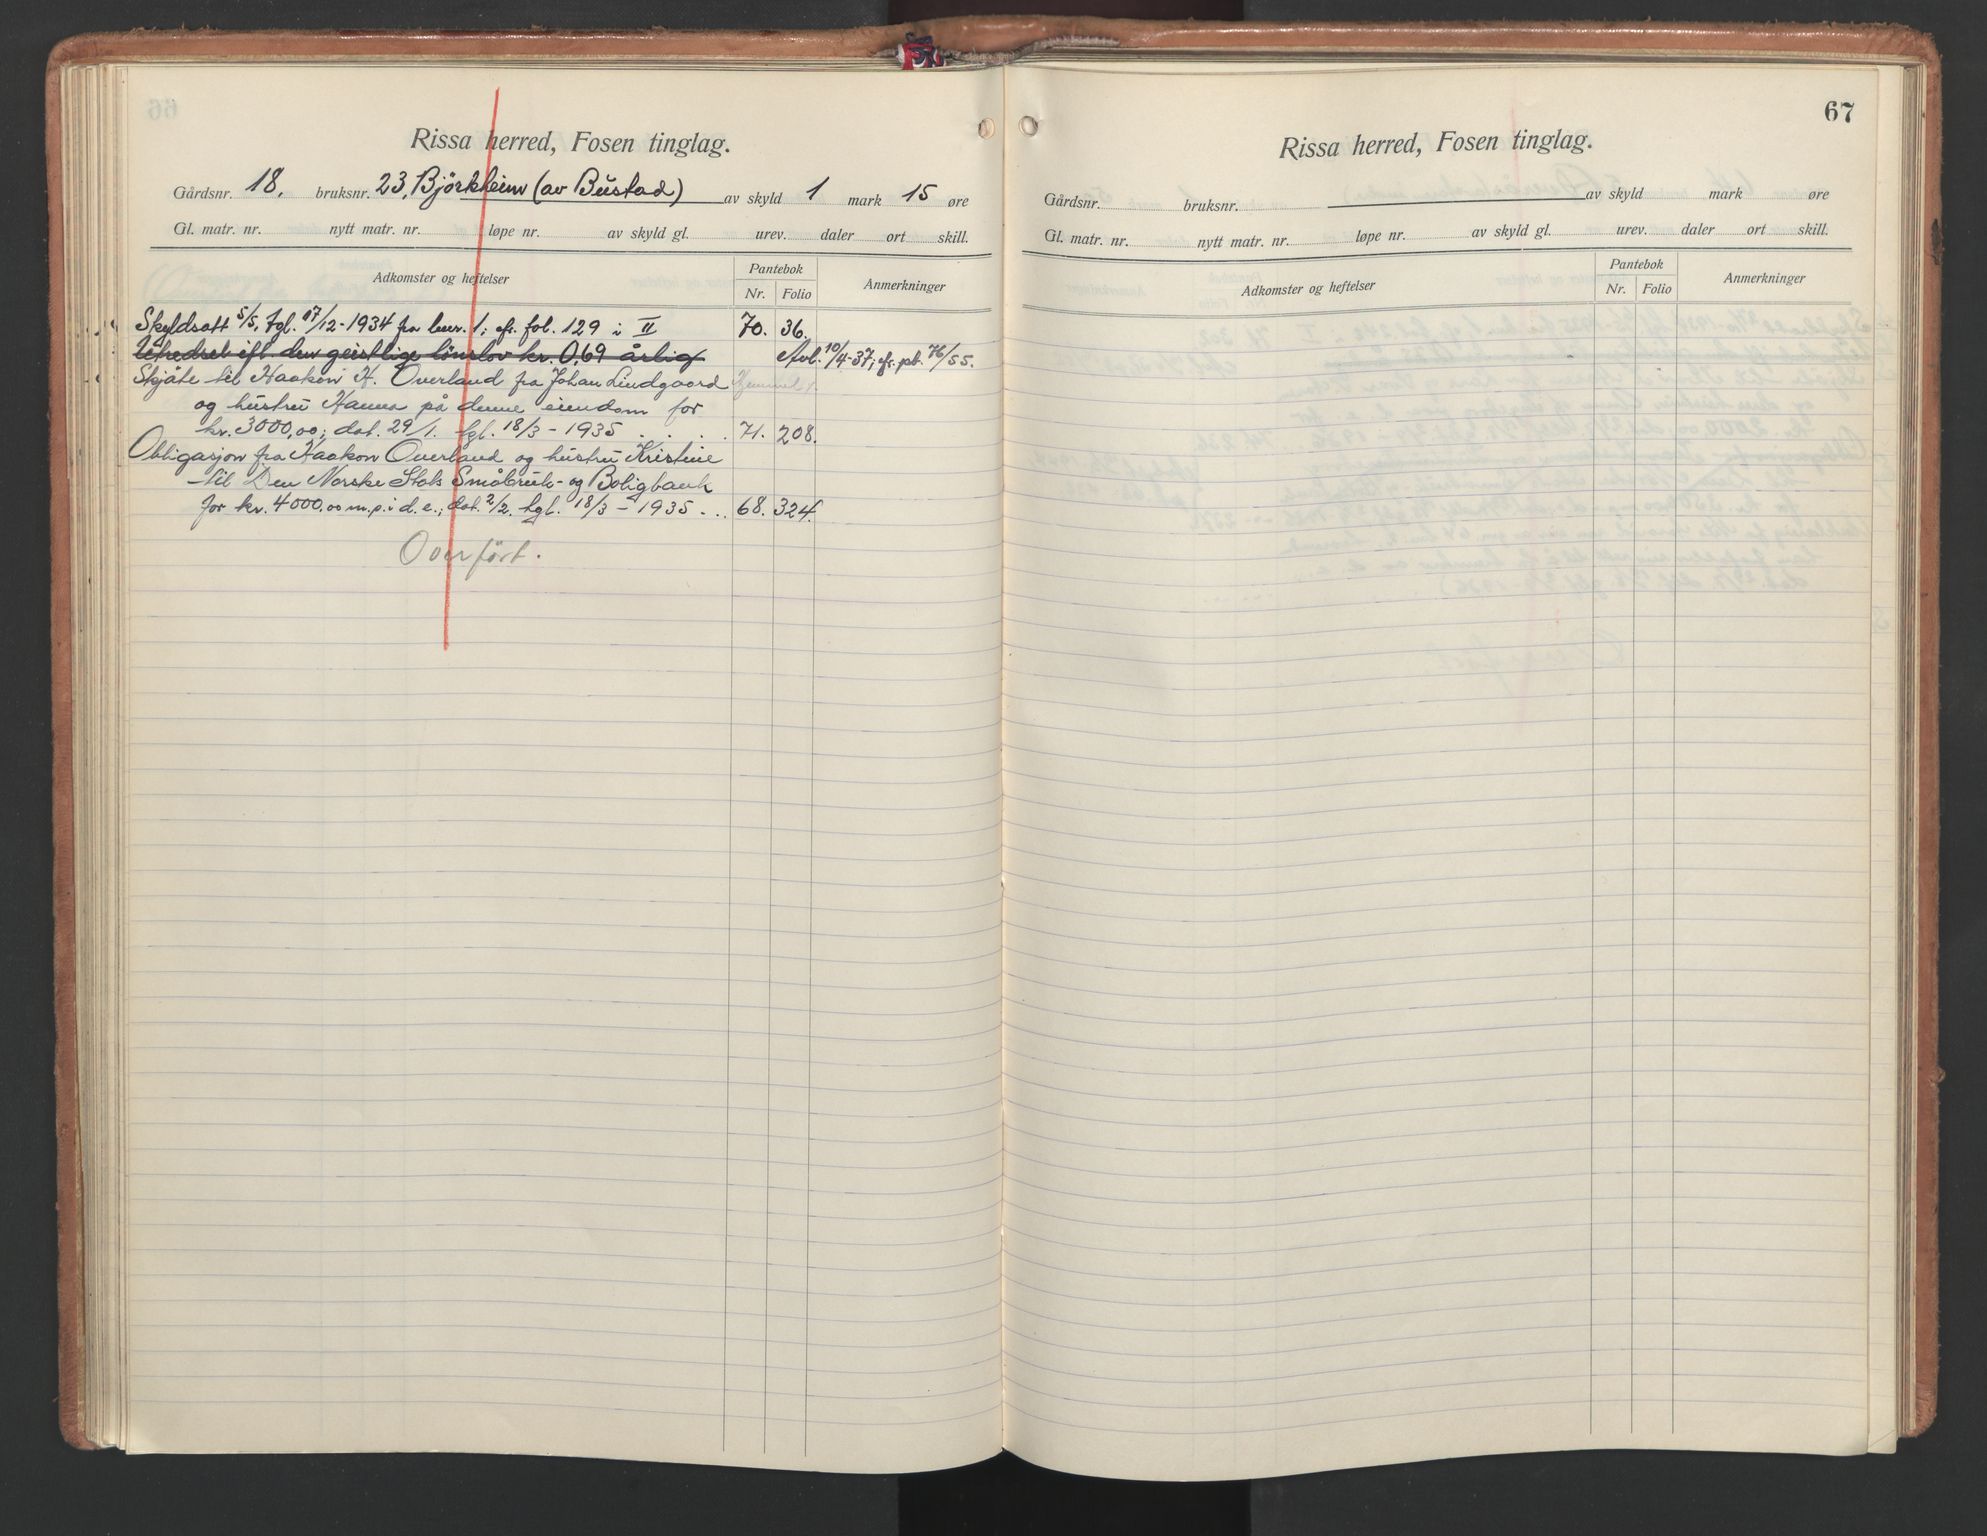 Rissa herred, Fosen tinglag.
Gårdsnr. 18. bruksnr. 23, Björkheim (av Bustad) av skyld 1 mark 15 øre
Gl. matr. nr. nytt matr. nr. løpe nr. av skyld gl. urev. daler ort skill.
Adkomster og heftelser Pantebok Anmerkninger
Nr. Folio
Skyldsatt 5/5, tgl. 17/12-1934 fra bnr. 1; cfr. fol. 129 i II 70. 36.
Utredsel ifl. den geistlige lönslov kr. 0,69 årlig Avl. 10/4-37; cfr. pb. 76/55.
Skjöte til Haakon H. Överland fra Johan Lindgaard Hjemmel
og hustru Hanna på denne eiendom for
kr. 3000,00; dat. 29/1. tgl. 18/3-1935 . . . . 71. 208.
Obligasjon fra Haakon Överland og hustru Kristine
til Den Norske Stats Småbruk- og Boligbank
for kr. 4000,00 m.p.i d.e.; dat. 2/2. tgl. 18/3-1935 . . . 68. 324.
Overfört.
67
Rissa herred, Fosen tinglag.
Gårdsnr. bruksnr. av skyld mark øre
Gl. matr. nr. nytt matr. nr. løpe nr. av skyld gl. urev. daler ort skill.
Adkomster og heftelser Pantebok Anmerkninger
Nr. Folio